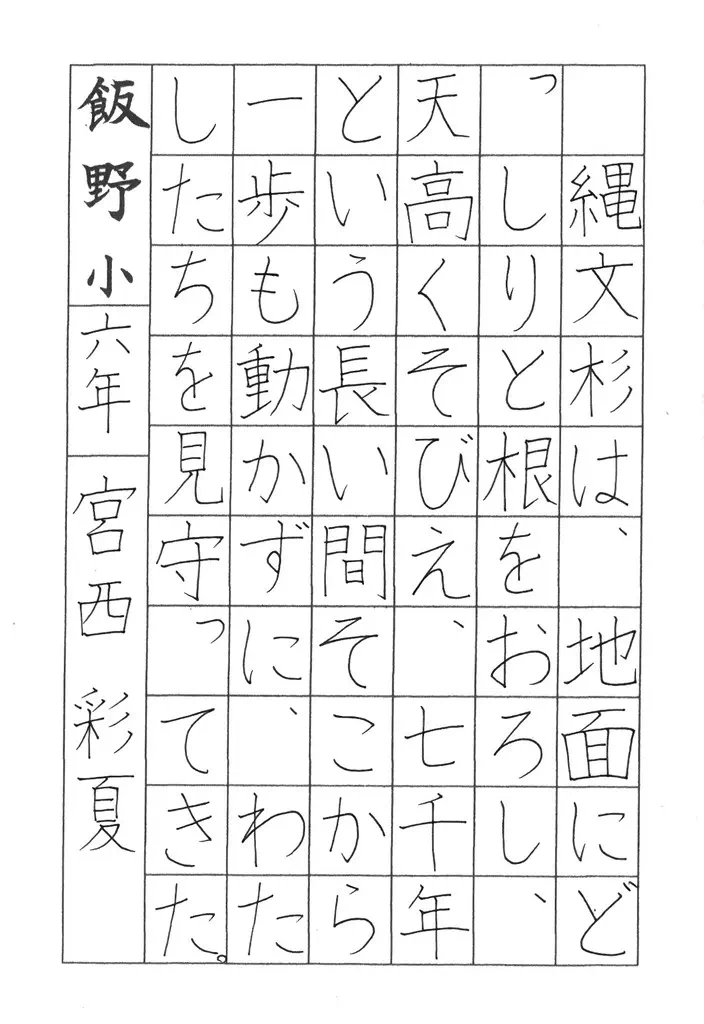 縄文杉は、地面にど
っしりと根をおろし、
天高くそびえ、七千年
という長い間そこから
一歩も動かずに、わた
したちを見守ってきた。
飯野小 六年 宮西 彩夏